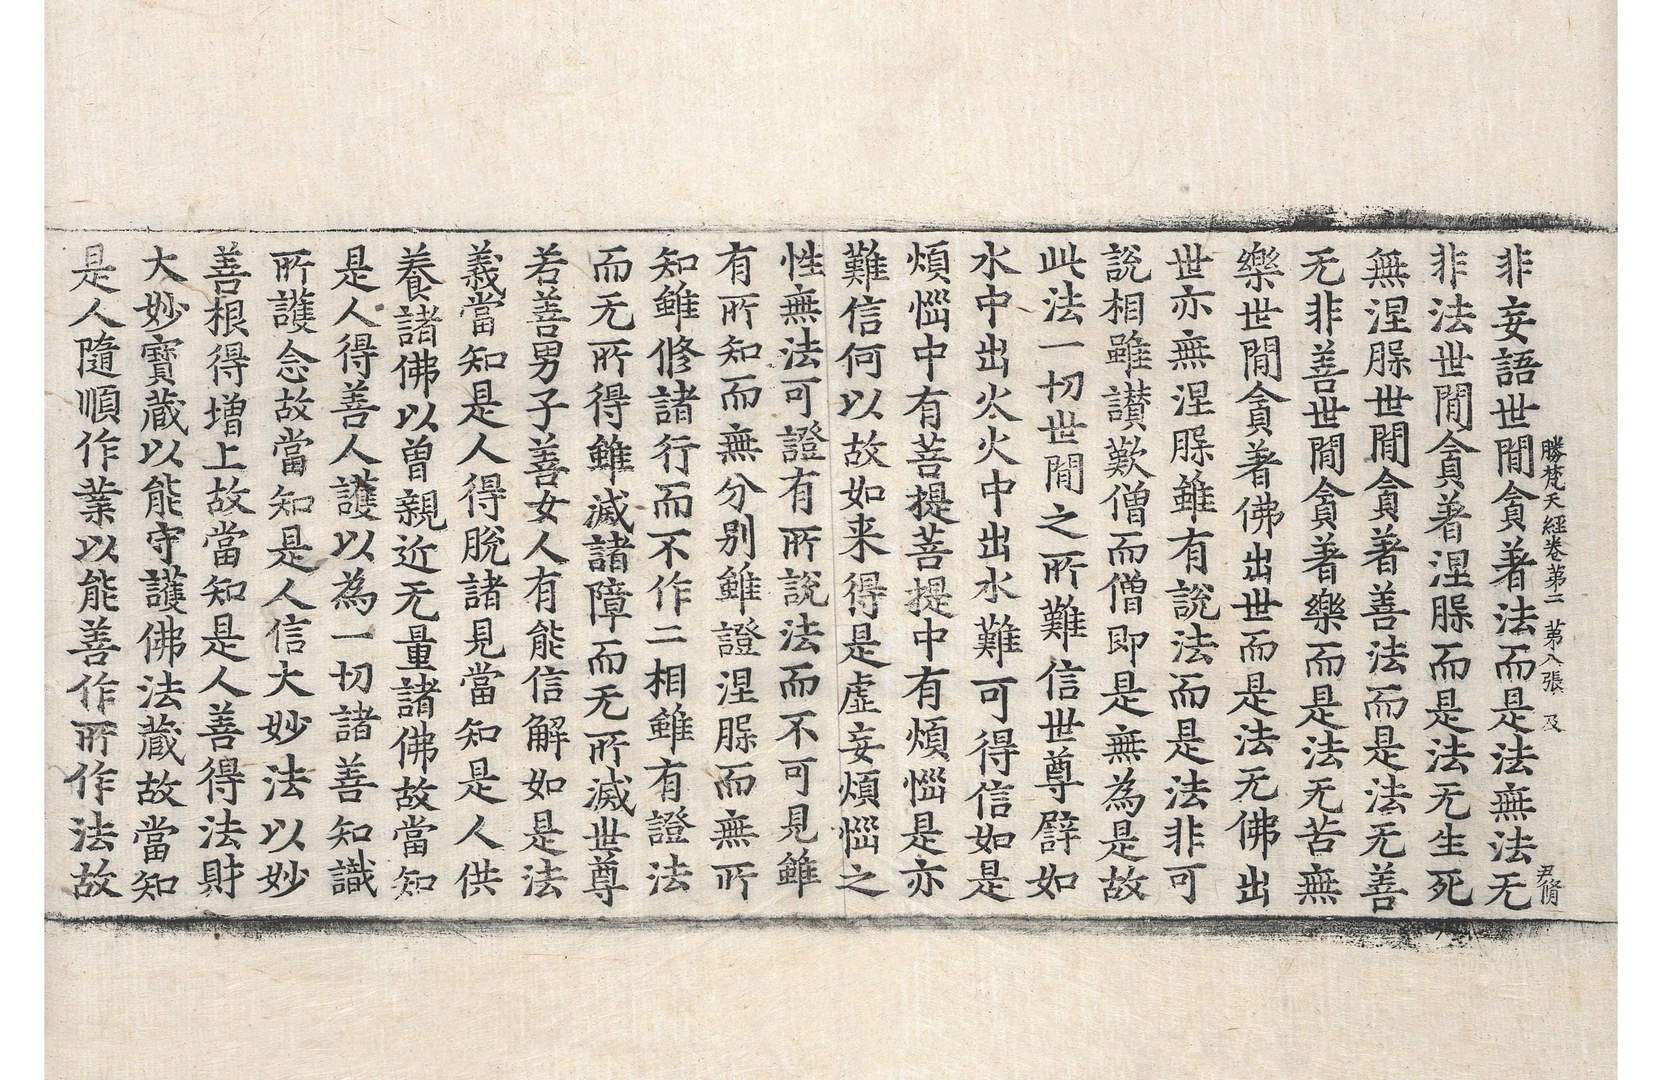 勝梵天經卷第二 第八張 及 尹脩
非妄語世間貪著法而是法無法无
非法世間貪著涅槃而是法无生死
無涅槃世間貪著善法而是法无善
无非善世間貪著樂而是法无苦無
樂世間貪著佛出世而是法无佛出
世亦無涅槃雖有說法而是法非可
說相雖讃歎僧而僧即是無為是故
此法一切世間之所難信世尊譬如
水中出火火中出水難可得信如是
煩惱中有菩提菩提中有煩惱是亦
難信何以故如来得是虛妄煩惱之
性無法可證有所說法而不可見雖
有所知而無分别雖證涅槃而無所
知雖修諸行而不作二相雖有證法
而无所得雖滅諸障而无所滅世尊
若善男子善女人有能信解如是法
義當知是人得脫諸見當知是人供
養諸佛以曾親近无量諸佛故當知
是人得善人護以為一切諸善知識
所護念故當知是人信大妙法以妙
善根得增上故當知是人善得法財
大妙寶藏以能守護佛法藏故當知
是人隨順作業以能善作所作法故